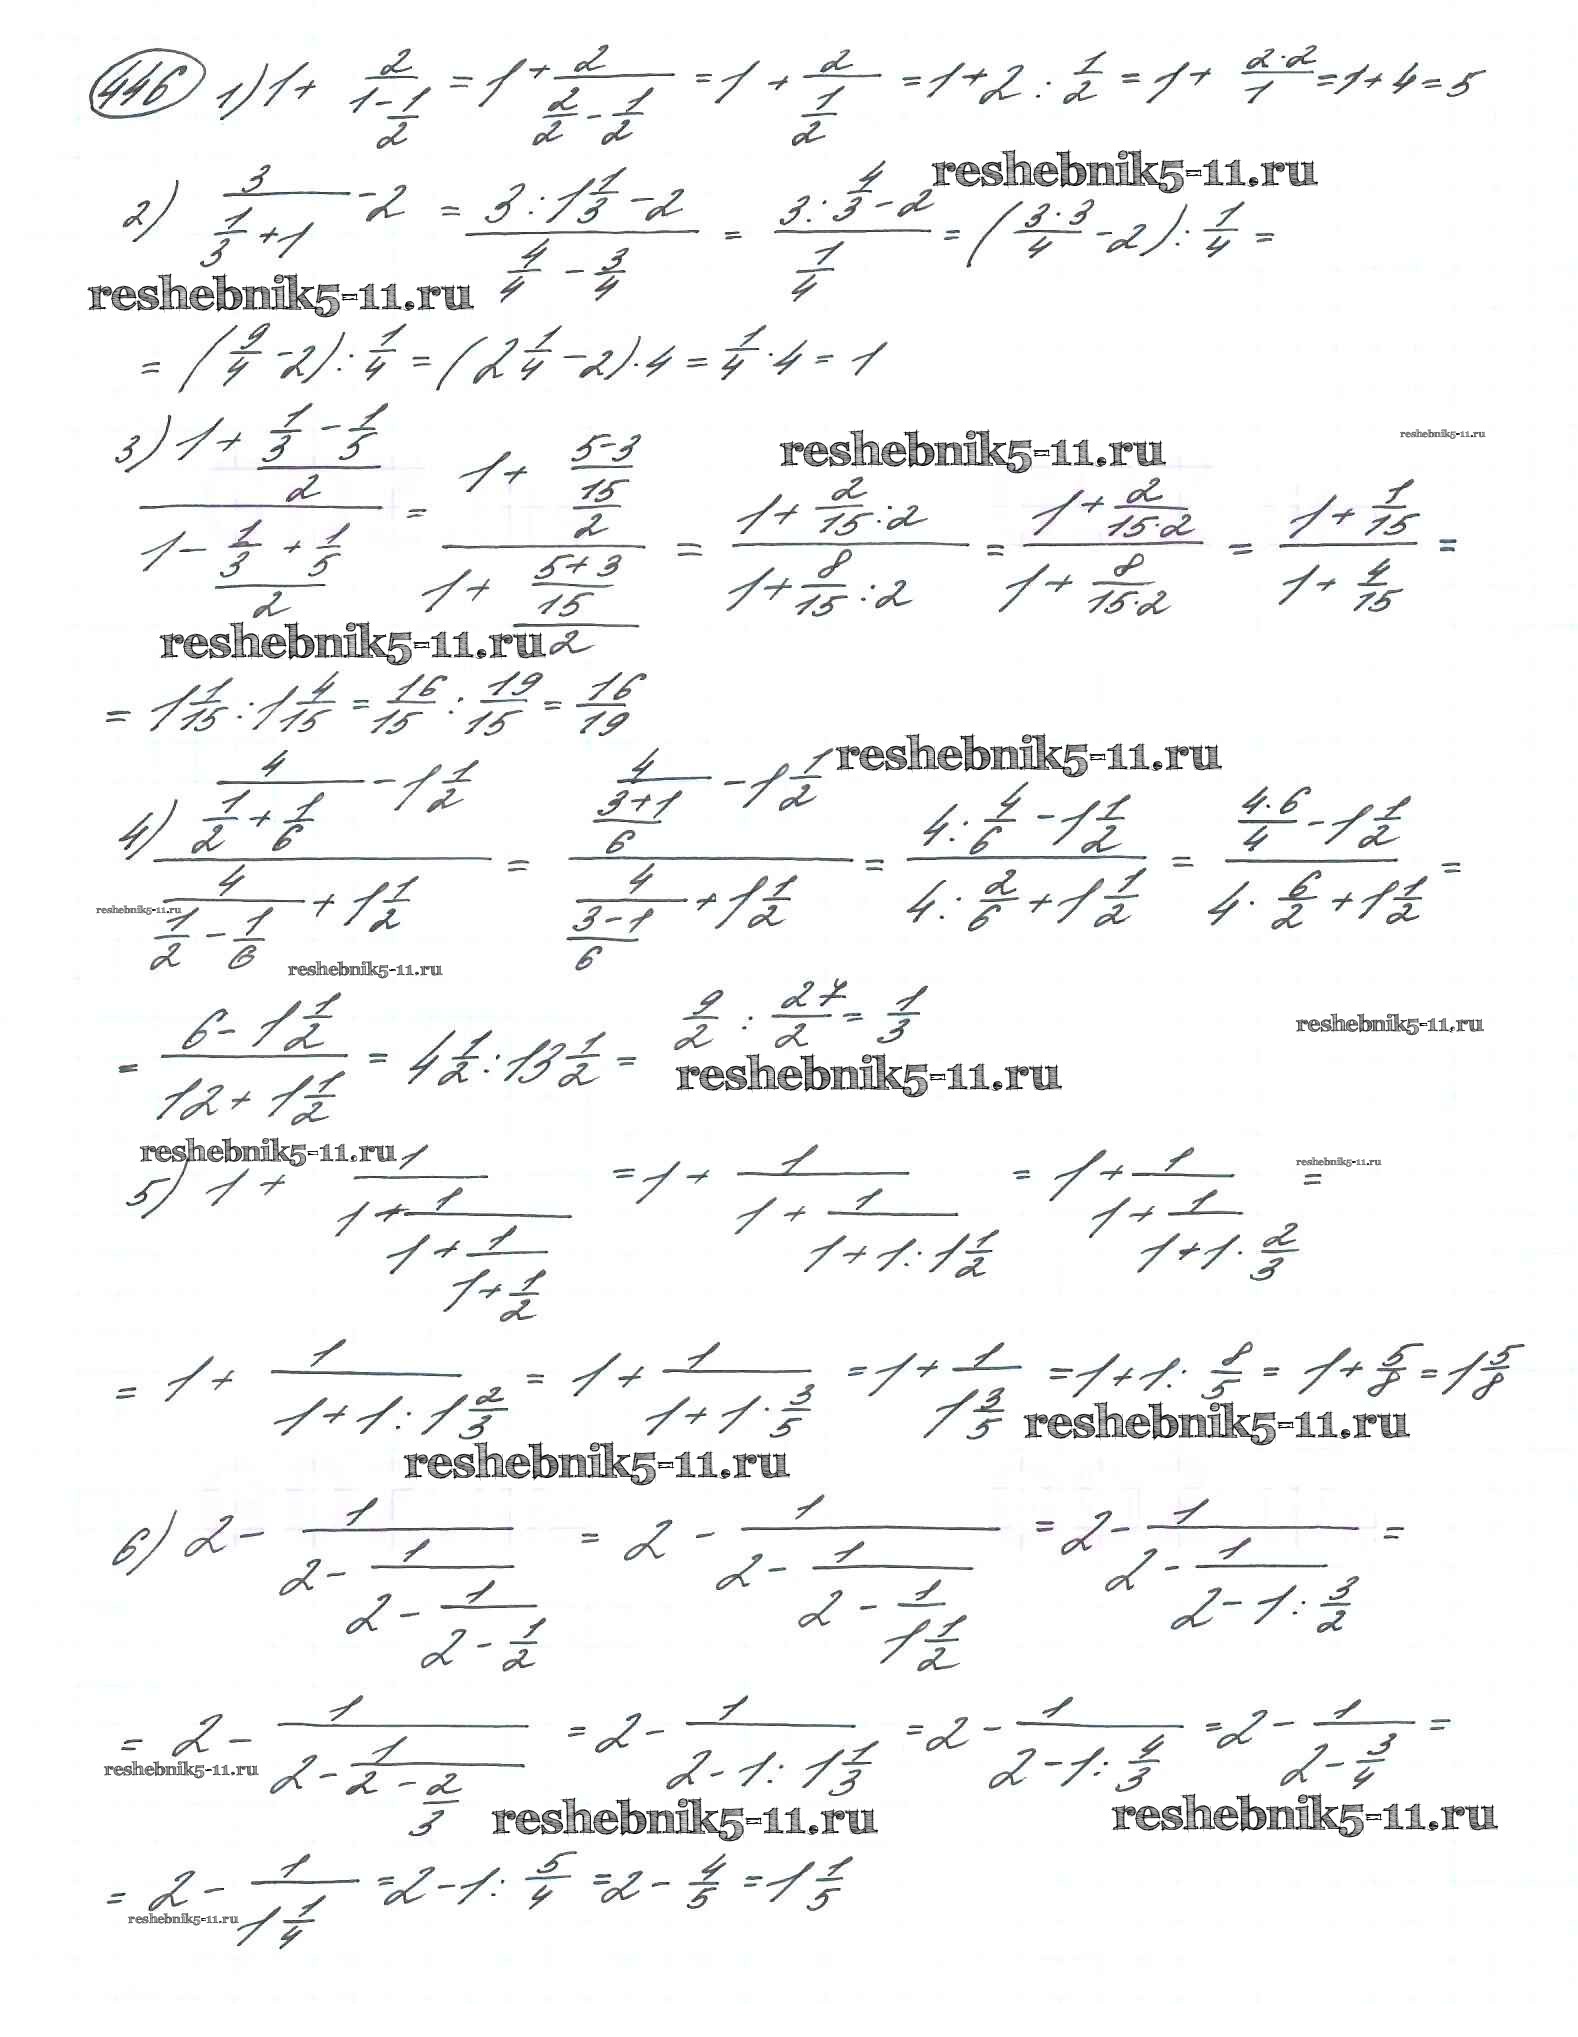 446 1) 1 + 2/(1 - 1/2) = 1 + 2/(2/2 - 1/2) = 1 + 2/(1/2) = 1 + 2 : 1/2 = 1 + (2·2)/1 = 1 + 4 = 5
reshebnik5-11.ru
2) 3/(1/3 + 1) - 2 = (3 : 1 1/3 - 2)/(4/4 - 3/4) = (3 : 4/3 - 2)/(1/4) = ((3·3)/4 - 2) : 1/4 =
reshebnik5-11.ru
= (9/4 - 2) : 1/4 = (2 1/4 - 2) · 4 = 1/4 · 4 = 1
reshebnik5-11.ru
reshebnik5-11.ru
3) (1 + (1/3 - 1/5)/2)/(1 - (1/3 + 1/5)/2) = (1 + ((5-3)/15)/2)/(1 + ((5+3)/15)/2) = (1 + 2/15 : 2)/(1 + 8/15 : 2) = (1 + 2/(15·2))/(1 + 8/(15·2)) = (1 + 1/15)/(1 + 4/15) =
reshebnik5-11.ru
= 1 1/15 : 1 4/15 = 16/15 : 19/15 = 16/19
reshebnik5-11.ru
4) (4/(1/2 + 1/6) - 1 1/2)/(4/(1/2 - 1/6) + 1 1/2) = (4/((3+1)/6) - 1 1/2)/(4/((3-1)/6) + 1 1/2) = (4 : 4/6 - 1 1/2)/(4 : 2/6 + 1 1/2) = ((4·6)/4 - 1 1/2)/(4 · 6/2 + 1 1/2) =
reshebnik5-11.ru
reshebnik5-11.ru
reshebnik5-11.ru
= (6 - 1 1/2)/(12 + 1 1/2) = 4 1/2 : 13 1/2 = 9/2 : 27/2 = 1/3
reshebnik5-11.ru
reshebnik5-11.ru
reshebnik5-11.ru
5) 1 + 1/(1 + 1/(1 + 1/(1 + 1/2))) = 1 + 1/(1 + 1/(1 + 1 : 1 1/2)) = 1 + 1/(1 + 1/(1 + 1 · 2/3)) =
= 1 + 1/(1 + 1 : 1 2/3) = 1 + 1/(1 + 1 · 3/5) = 1 + 1/(1 3/5) = 1 + 1 : 8/5 = 1 + 5/8 = 1 5/8
reshebnik5-11.ru
reshebnik5-11.ru
6) 2 - 1/(2 - 1/(2 - 1/(2 - 1/2))) = 2 - 1/(2 - 1/(2 - 1/(1 1/2))) = 2 - 1/(2 - 1/(2 - 1 : 3/2)) =
= 2 - 1/(2 - 1/(2 - 2/3)) = 2 - 1/(2 - 1 : 1 1/3) = 2 - 1/(2 - 1 : 4/3) = 2 - 1/(2 - 3/4) =
reshebnik5-11.ru
reshebnik5-11.ru
reshebnik5-11.ru
= 2 - 1/(1 1/4) = 2 - 1 : 5/4 = 2 - 4/5 = 1 1/5
reshebnik5-11.ru